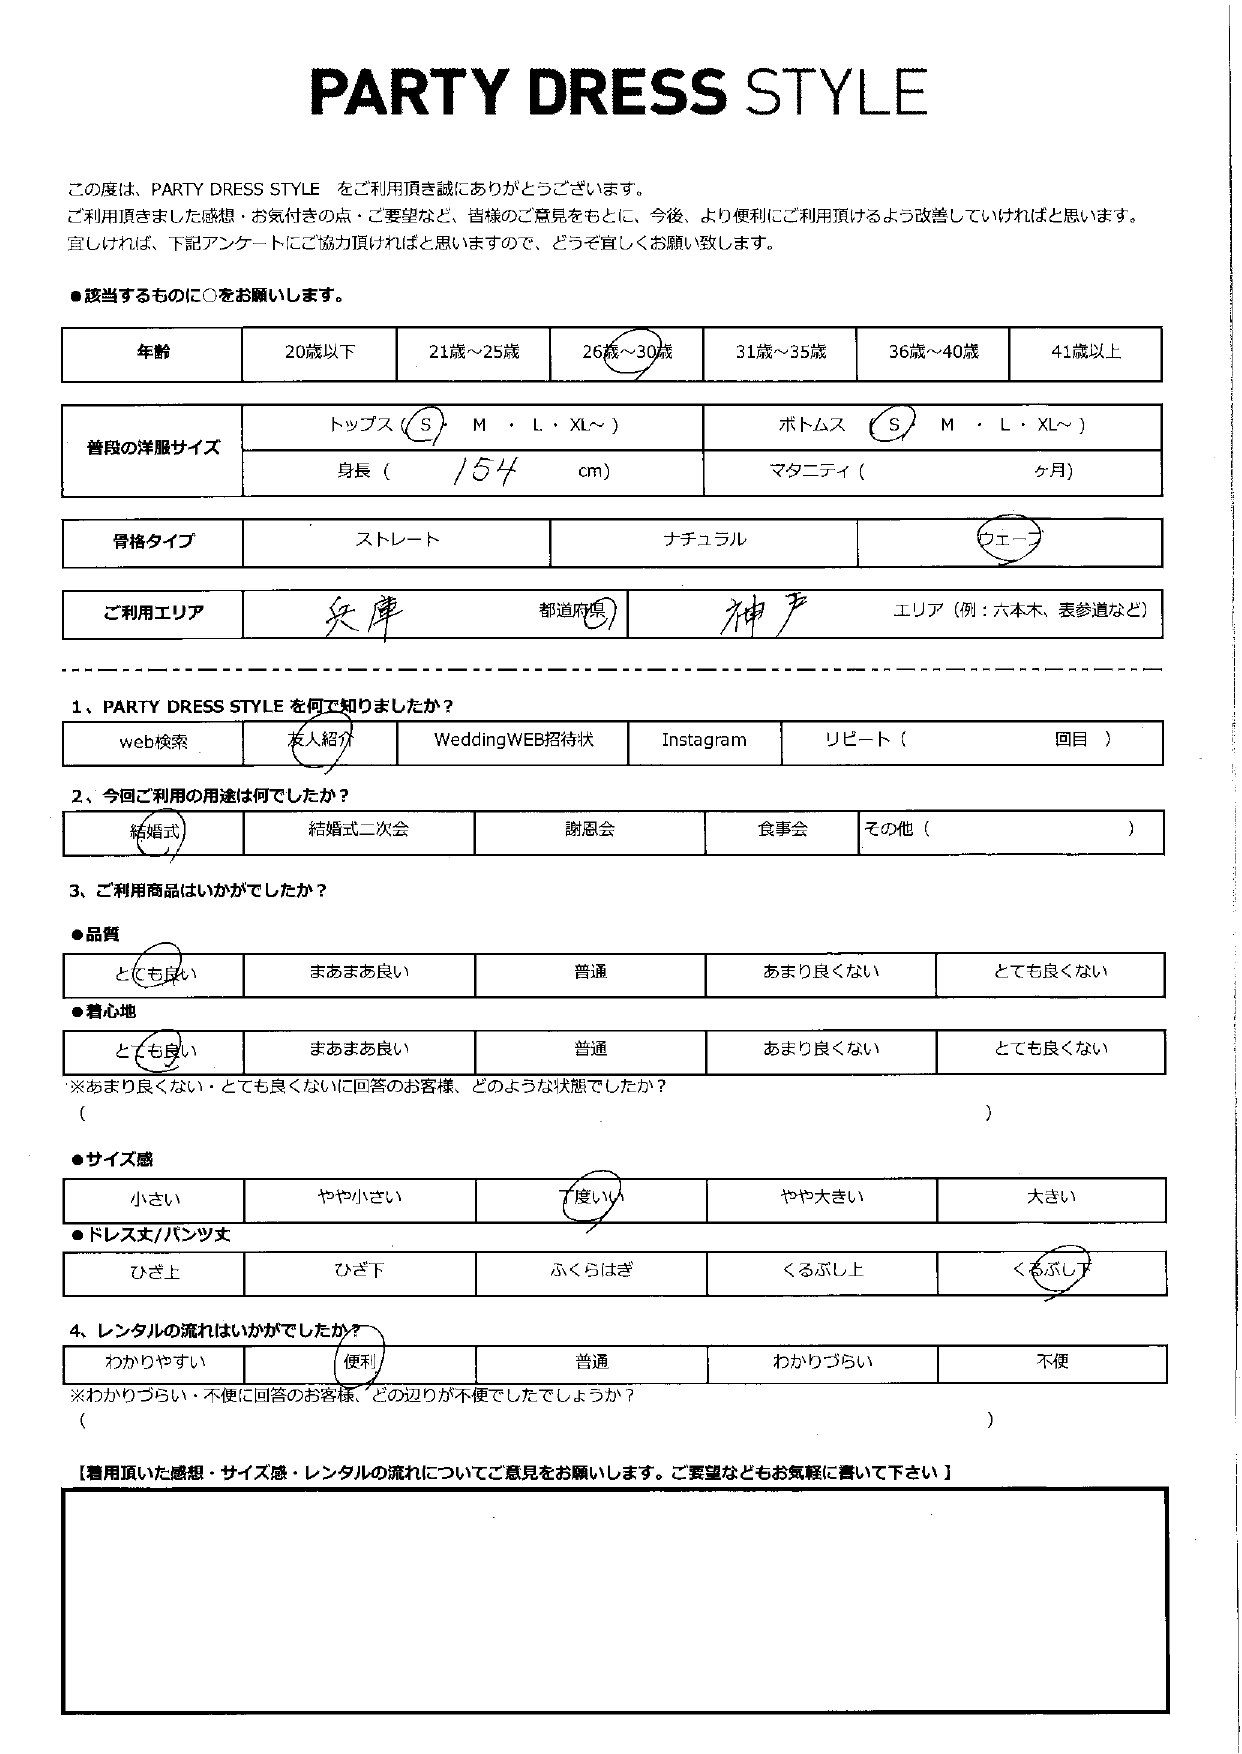 PARTY DRESS STYLE
この度は、PARTY DRESS STYLE　をご利用頂き誠にありがとうございます。
ご利用頂きました感想・お気付きの点・ご要望など、皆様のご意見をもとに、今後、より便利にご利用頂けるよう改善していければと思います。
宜しければ、下記アンケートにご協力頂ければと思いますので、どうぞ宜しくお願い致します。
●該当するものに○をお願いします。
年齢 20歳以下 21歳～25歳 26歳～30歳 31歳～35歳 36歳～40歳 41歳以上
普段の洋服サイズ トップス ( S ・ M ・ L ・ XL～ ) ボトムス ( S ・ M ・ L ・ XL～ )
身長 ( 154 cm) マタニティ ( ヶ月)
骨格タイプ ストレート ナチュラル ウェーブ
ご利用エリア 兵庫 都道府県 神戸 エリア（例：六本木、表参道など）
1、PARTY DRESS STYLE を何で知りましたか？
web検索 友人紹介 WeddingWEB招待状 Instagram リピート（ 回目 ）
2、今回ご利用の用途は何でしたか？
結婚式 結婚式二次会 謝恩会 食事会 その他（ ）
3、ご利用商品はいかがでしたか？
●品質
とても良い まあまあ良い 普通 あまり良くない とても良くない
●着心地
とても良い まあまあ良い 普通 あまり良くない とても良くない
※あまり良くない・とても良くないに回答のお客様、どのような状態でしたか？
( )
●サイズ感
小さい やや小さい 丁度いい やや大きい 大きい
●ドレス丈/パンツ丈
ひざ上 ひざ下 ふくらはぎ くるぶし上 くるぶし下
4、レンタルの流れはいかがでしたか？
わかりやすい 便利 普通 わかりづらい 不便
※わかりづらい・不便に回答のお客様、どの辺りが不便でしたでしょうか？
( )
【着用頂いた感想・サイズ感・レンタルの流れについてご意見をお願いします。ご要望などもお気軽に書いて下さい】